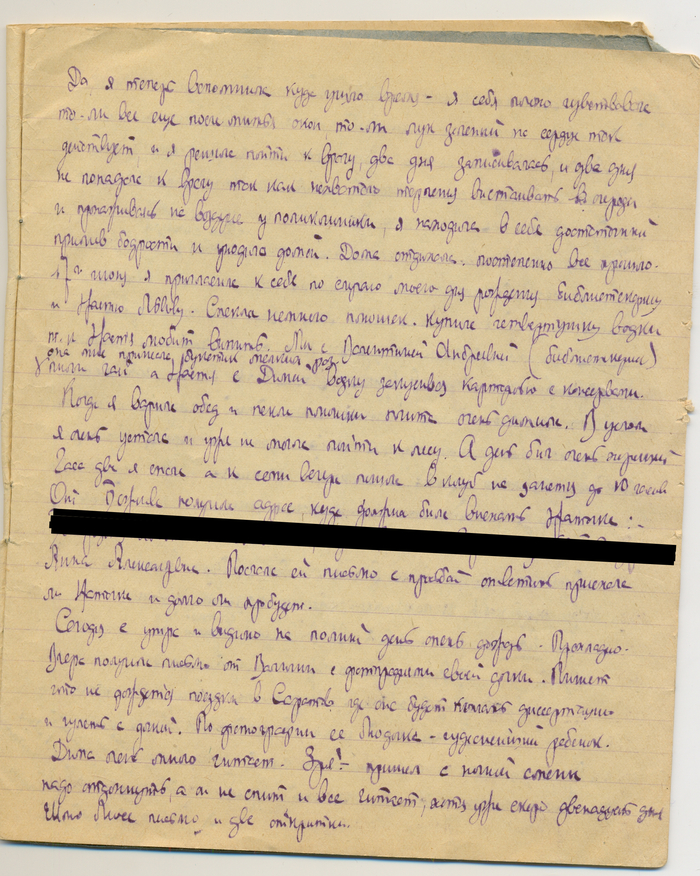 Да, я теперь вспомнила куда ушло время – я себя плохо чувствовала
то-ли все еще после мытья окон, то-ли лук зеленый на сердце так
действует, и я решила пойти к врачу, два дня записывалась, и два дня
не попадала к врачу так как нехватало терпения выстаивать в очереди
и прохаживаясь на воздухе у поликлиники, я находила в себе достаточный
прилив бодрости и уходила домой. Дома отдыхала. постепенно все прошло.
17го июля я пригласила к себе по случаю моего дня рождения библиотекаршу
и Настю Львову. Спекла немного плюшек. Купила четвертушку водки
т.к Настя любит выпить. Мы с Валентиной Андреевной (библиотекарша)
она мне принесла букетик
пили чай а Настя с Димой водку закусывая картошкой с консервами.
Когда я варила обед и пекла плюшки плита очень дымила. В целом
я очень устала и уже не могла пойти к лесу. А день был очень хороший
Часа два я спала а к семи вечера пошла в клуб на до 10 часов
От получила адрес, куда должна была выехать Наташа:-
Анна Александровна. Послала ей письмо с просьбой ответить приехала
ли Наташа и долго ли пробудет.
Сегодня с утра и видимо на полный день очень дождь. Прохладно.
Вчера получила письмо от Валички с фотографиями своей дочки. Пишет
что не дождется поездки в Саратов где она будет кончать диссертацию
и гулять с дочкой. По фотографии ее Людочка – чудеснейший ребенок.
Дима очень много читает. Зря!– пришел с ночной смены
надо отдохнуть, а он не спит и все читает, хотя уже скоро двенадцать дня
письмо и две открытки.